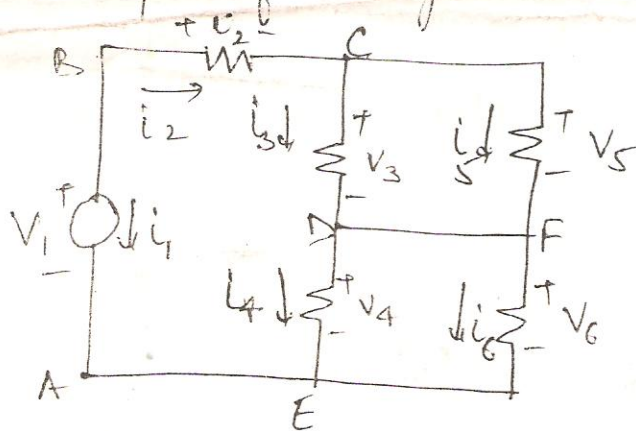 + v2 -
B
C
i2
i3 ↓
+
V3
-
i5 ↓
+
V5
-
V1
+
-
↓ i1
D
F
i4 ↓
+
V4
-
↓ i6
+
V6
-
A
E